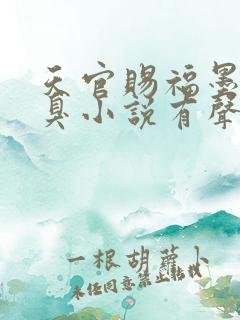 天官賜福墨
臭小説有聲
一根胡蘿小
未经同意禁止转载